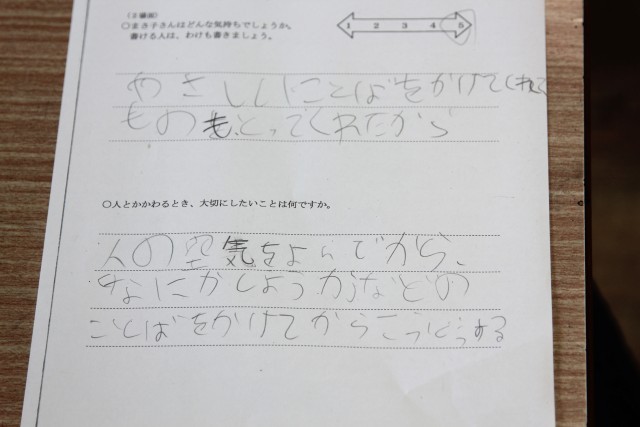 (2場面)
○まさ子さんはどんな気持ちでしょうか。
書ける人は、わけも書きましょう。
1 2 3 4 5
やさしいことばをかけてくれて
ものも、とってくれたから
○人とかかわるとき、大切にしたいことは何ですか。
人の空気をよんでから、
なにかしようかなどの
ことばをかけてからこうどうする